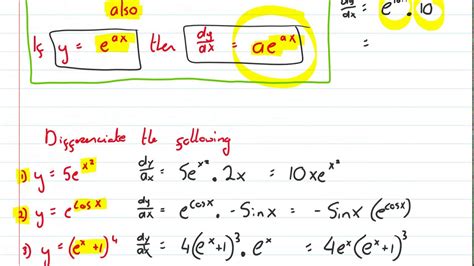 also
If y = e^{ax} then dy/dx = ae^{ax}
dy/dx = e^{10x} . 10
=
Differenciate the following
1) y = 5e^{x^2} dy/dx = 5e^{x^2} . 2x = 10xe^{x^2}
2) y = e^{cosx} dy/dx = e^{cosx} . -Sinx = - Sinx (e^{cosx})
3) y = (e^x+1)^4 dy/dx = 4(e^x+1)^3 . e^x = 4e^x(e^x+1)^3